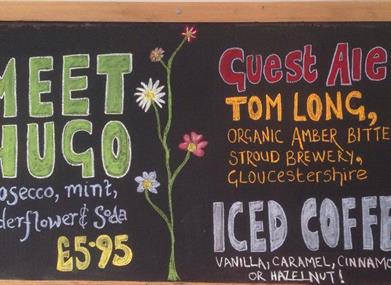 MEET
HUGO
osecco, mint,
derflower & Soda
£5·95
Guest Ale
TOM LONG,
ORGANIC AMBER BITTE
STROUD BREWERY,
GLOUCESTERSHIRE
ICED COFFE
VANILLA, CARAMEL, CINNAMO
OR HAZELNUT!